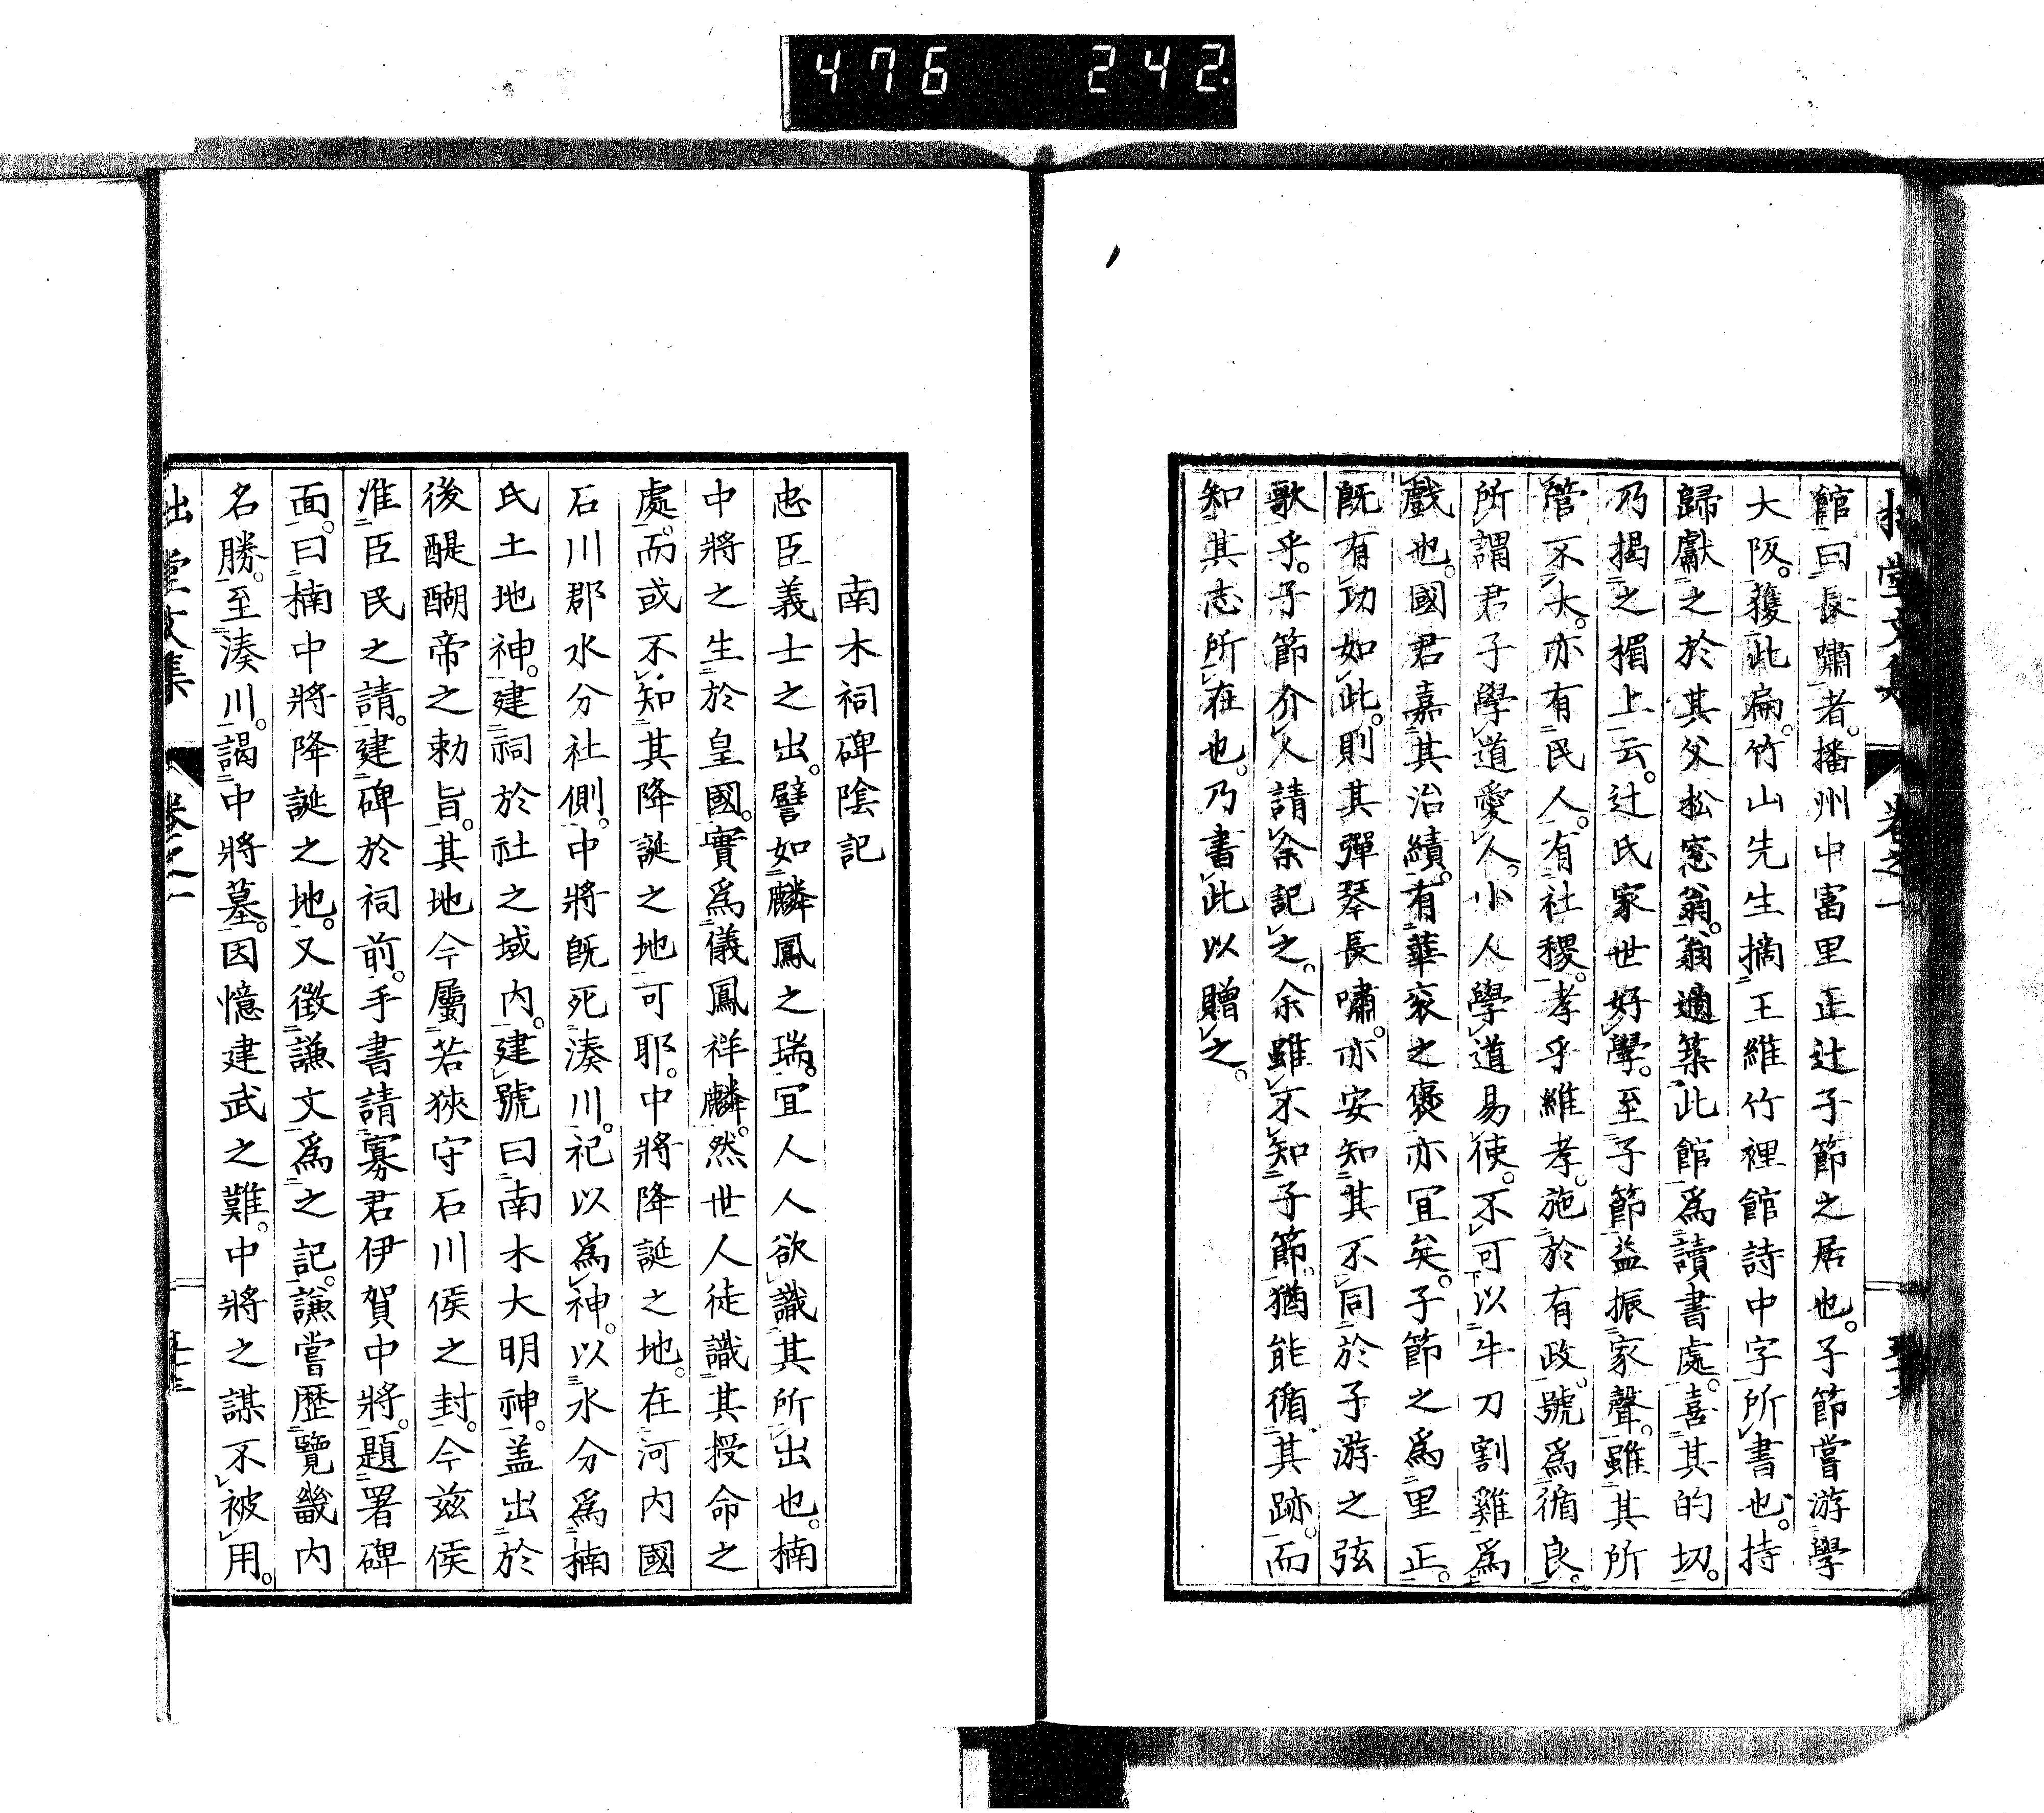 476 242.
館曰長嘯者。播州中富里正辻子節之居也。子節嘗游學
大阪。獲此扁。竹山先生摘王維竹裡館詩中字所書也。持
歸獻之於其父松窓翁。翁適築此館爲讀書處。喜其的切。
乃揭之楣上云。辻氏家世好學。至子節益振家聲。雖其所
管不大。亦有民人。有社稷。孝乎維孝。施於有政。號爲循良。
所謂君子學道愛人。小人學道易使。不可以牛刀割雞爲
戲也。國君嘉其治績。有華衮之褒亦宜矣。子節之爲里正。
既有功如此。則其彈琴長嘯。亦安知其不同於子游之弦
歌乎。子節介人請余記之。余雖不知子節。猶能循其跡。而
知其志所在也。乃書此以贈之。
南木祠碑陰記
忠臣義士之出。譬如麟鳳之瑞。宜人人欲識其所出也。楠
中將之生於皇國。實爲儀鳳祥麟。然世人徒識其授命之
處。而或不知其降誕之地可耶。中將降誕之地。在河内國
石川郡水分社側。中將既死湊川。祀以爲神。以水分爲楠
氏土地神。建祠於社之域内。建號曰南木大明神。盖出於
後醍醐帝之勅旨。其地今屬若狹守石川侯之封。今茲侯
准臣民之請。建碑於祠前。手書請寡君伊賀中將。題署碑
面。曰楠中將降誕之地。又徵謙文爲之記。謙嘗歷覽畿内
名勝。至湊川。謁中將墓。因憶建武之難。中將之謀不被用。
拙堂文集 卷之一